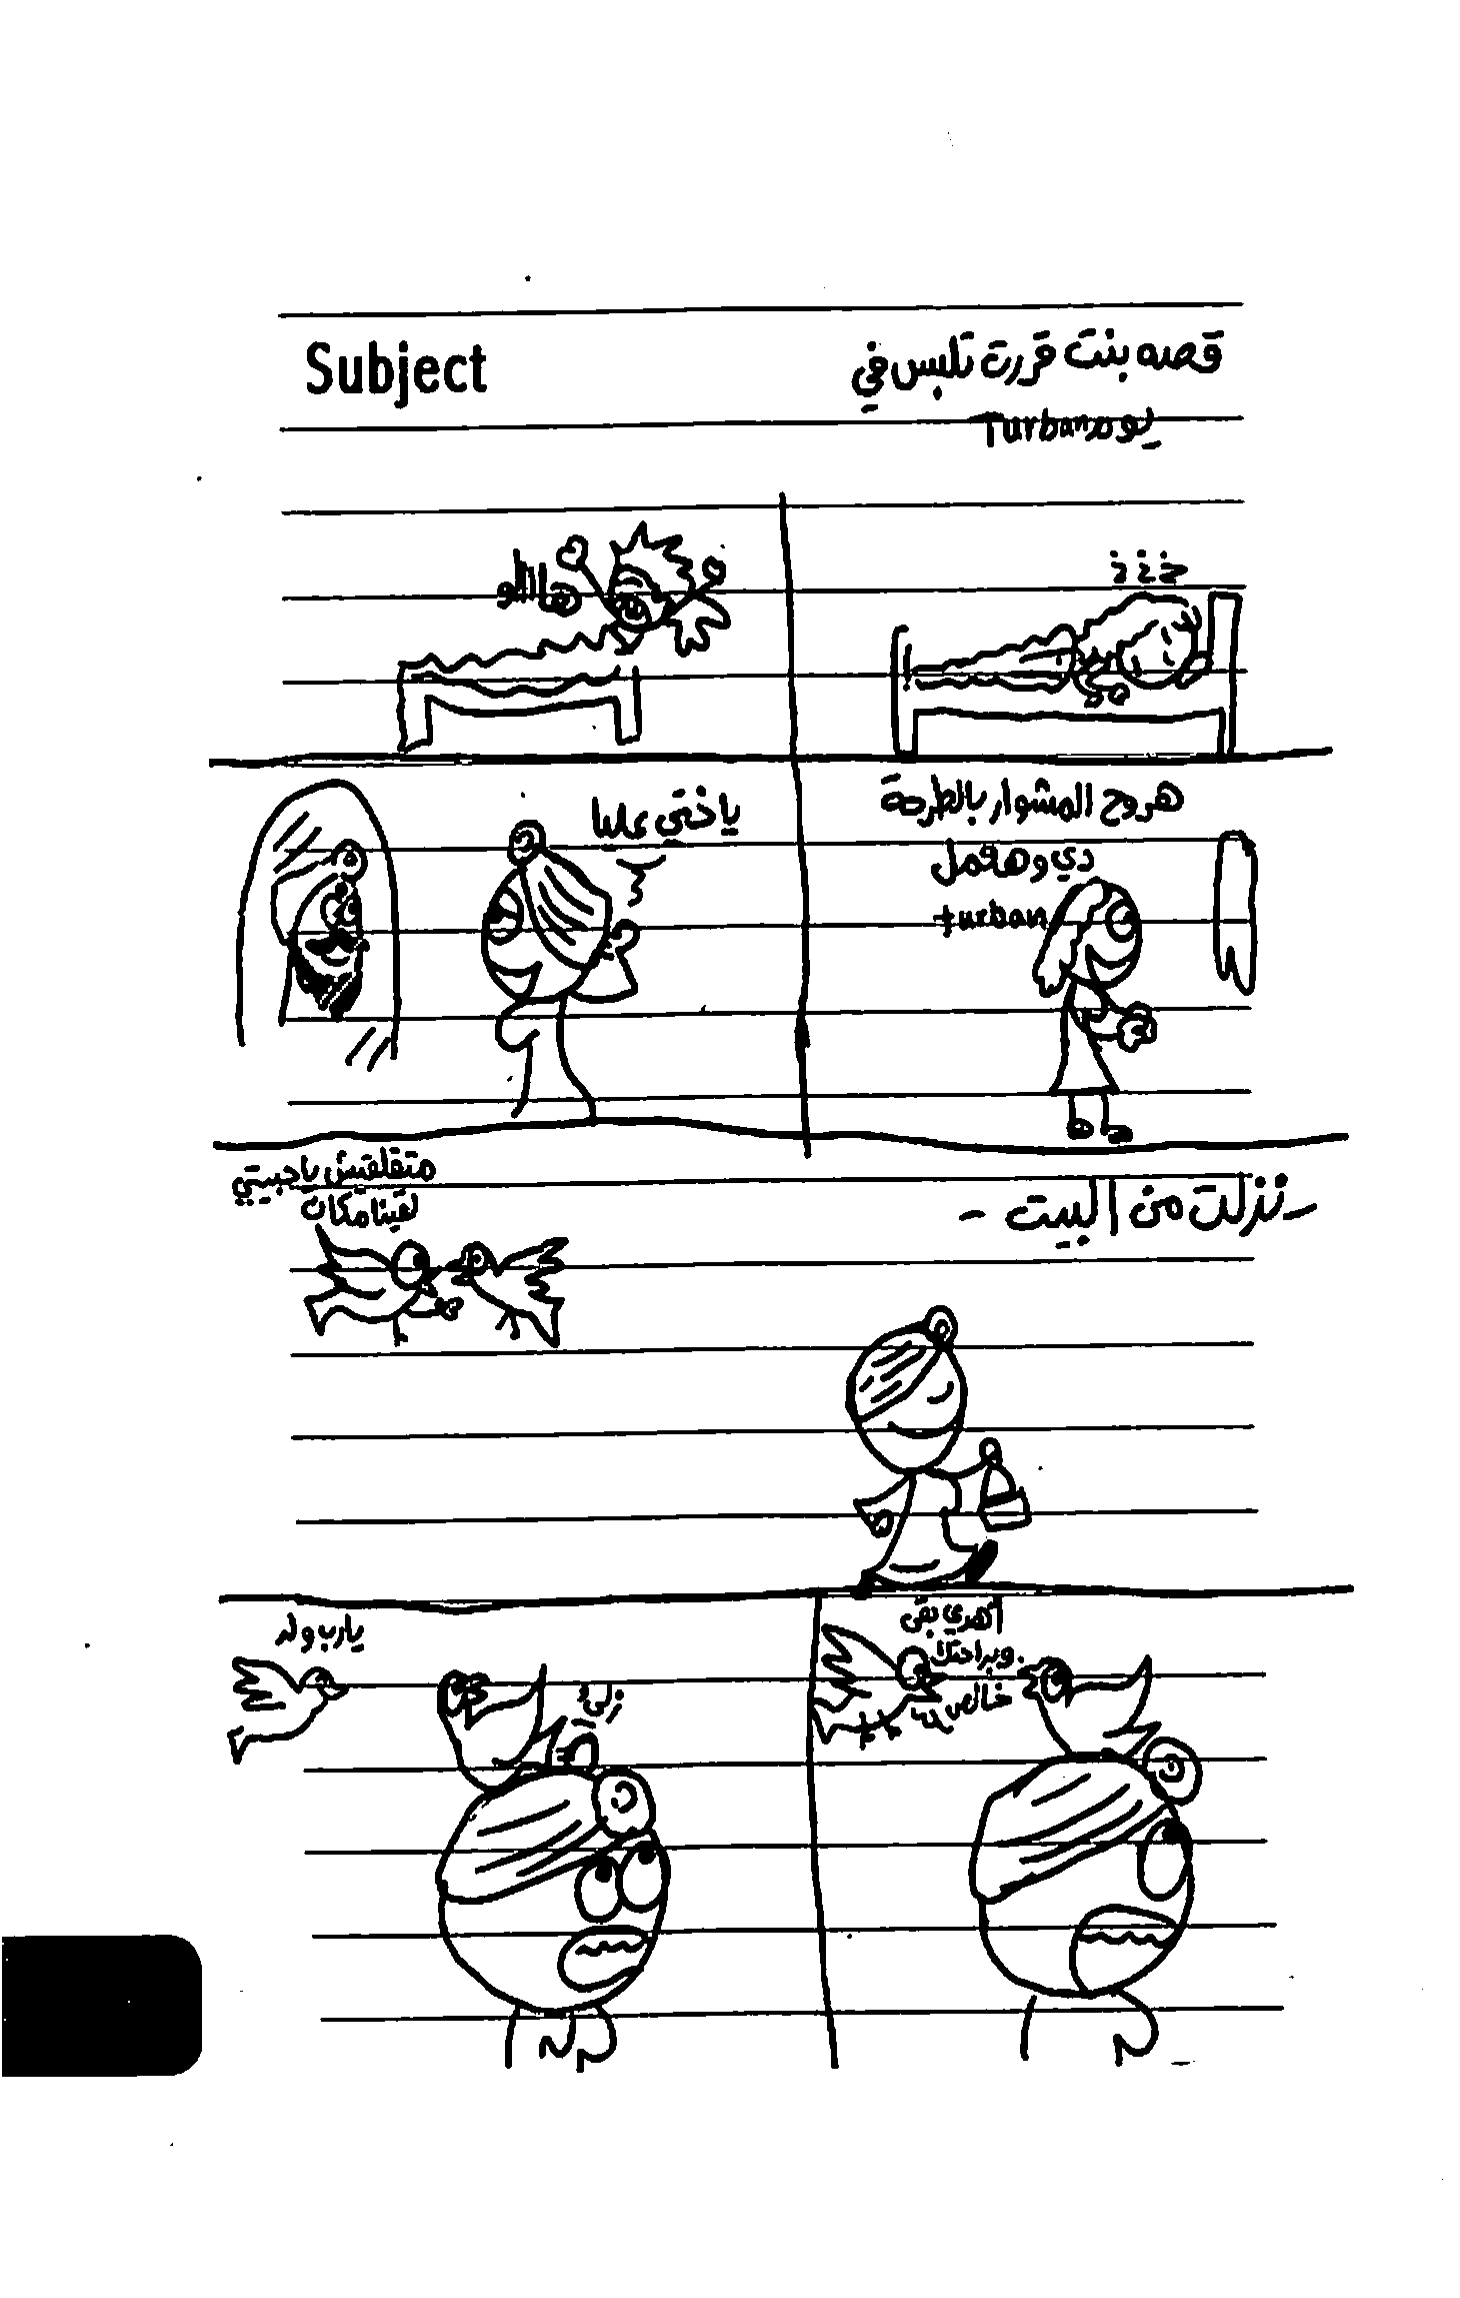 Subject
قصه بنت قررت تلبس في
يوم Turban
خ ز ز
هااللو
هروح المشوار بالطرحة
دي وهعمل
turban
ياختي عليا
- نزلت من البيت -
متقلقيش ياحبيبتي
لقينا مكان
اظهري بقى
وبراحتك
خالص
يارب ولد